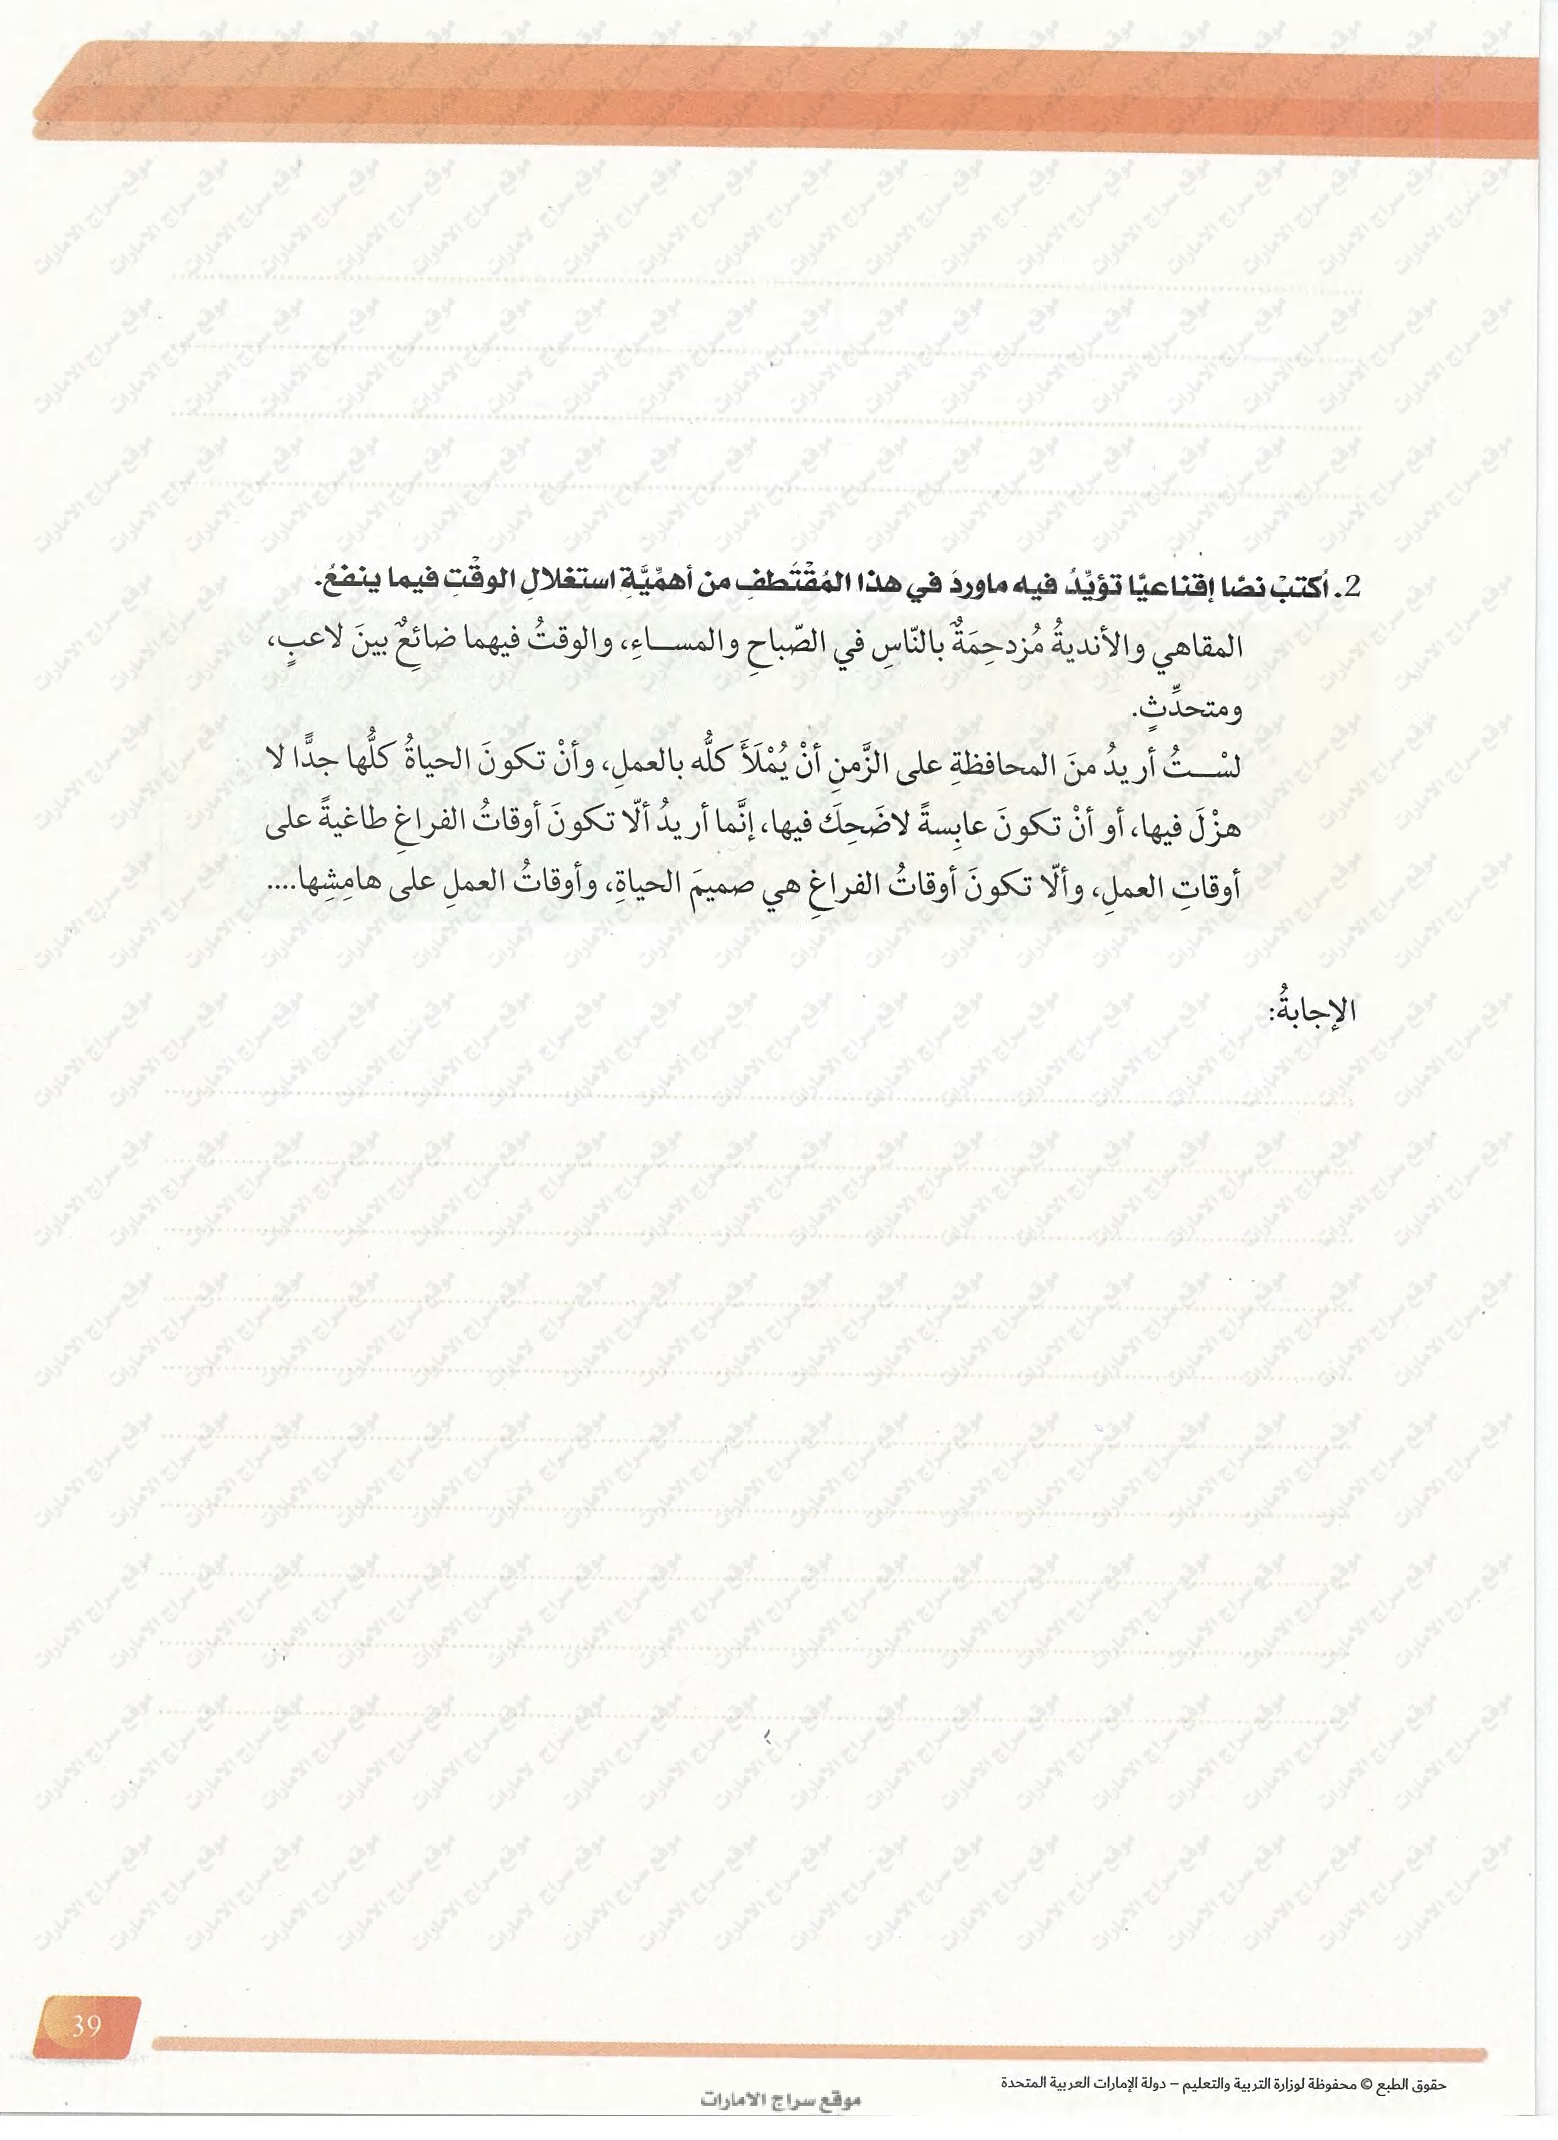 2. اُكتبْ نصًّا إقناعيًّا تؤيِّدُ فيه ماوردَ في هذا المُقْتَطفِ من أهمِّيَّةِ استغلالِ الوقْتِ فيما ينفعُ.
المقاهي والأنديةُ مُزدحِمَةٌ بالنّاسِ في الصّباحِ والمســاءِ، والوقتُ فيهما ضائِعٌ بينَ لاعبٍ،
ومتحدِّثٍ.
لسْــتُ أريدُ منَ المحافظةِ على الزَّمنِ أنْ يُمْلَأَ كلُّه بالعملِ، وأنْ تكونَ الحياةُ كلُّها جدًّا لا
هزْلَ فيها، أو أنْ تكونَ عابِسةً لاضَحِكَ فيها، إنَّما أريدُ ألّا تكونَ أوقاتُ الفراغِ طاغيةً على
أوقاتِ العملِ، وألّا تكونَ أوقاتُ الفراغِ هي صميمَ الحياةِ، وأوقاتُ العملِ على هامِشِها....
الإجابةُ:
39
حقوق الطبع © محفوظة لوزارة التربية والتعليم – دولة الإمارات العربية المتحدة
موقع سراج الامارات